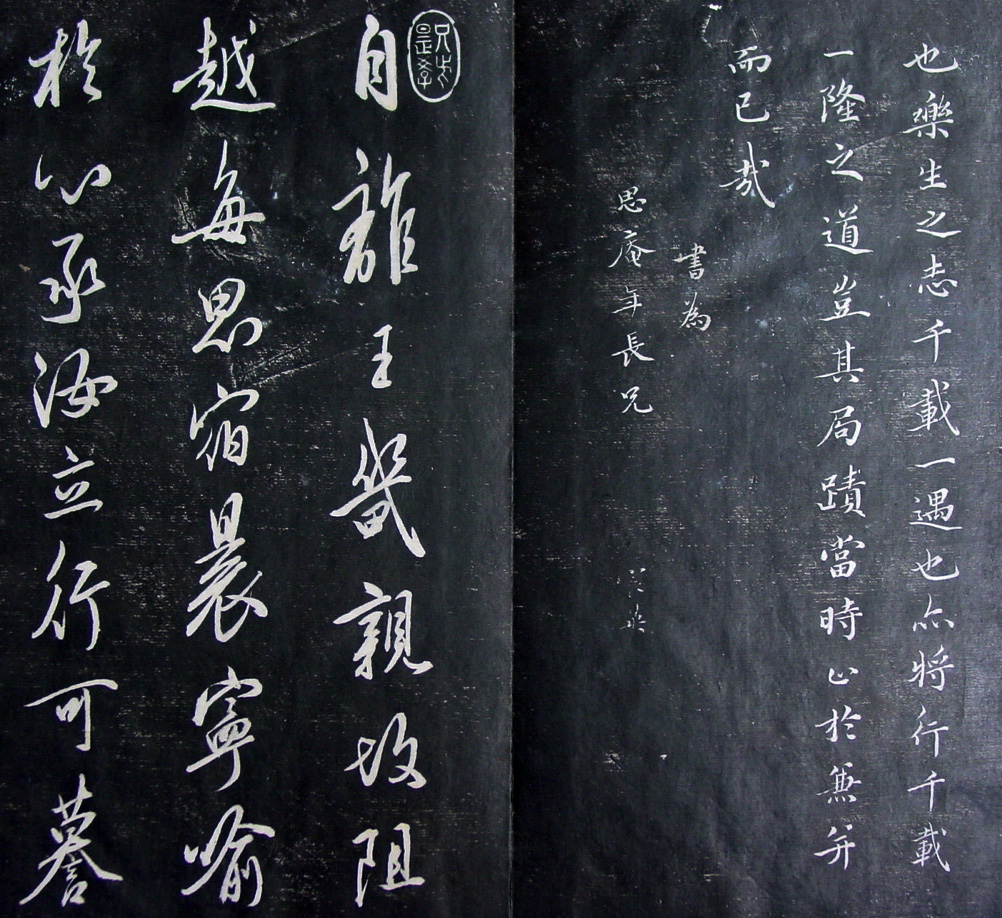 也樂生之志千載一遇也亦將行千載
一隆之道豈其局蹟當時止於兼并
而已哉
書為
思庵年長兄
自離王畿親故阻
越每思宿晨寧喻
於心承汝立行可謩